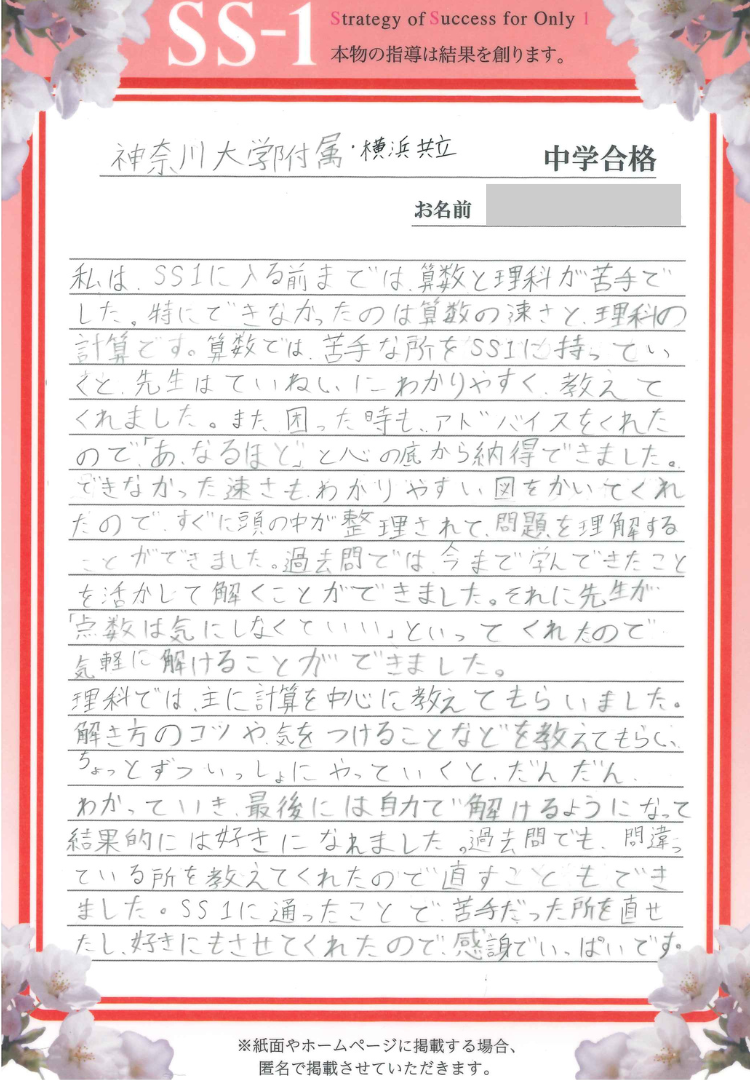 SS-1
Strategy of Success for Only 1
本物の指導は結果を創ります。
神奈川大学附属・横浜共立 中学合格
お名前
私は、SS1に入る前までは、算数と理科が苦手で
した。特にできなかったのは算数の速さと、理科の
計算です。算数では、苦手な所をSS1に持ってい
くと、先生はていねいにわかりやすく、教えて
くれました。また、困った時も、アドバイスをくれた
ので、「あ、なるほど」と心の底から納得できました。
できなかった速さもわかりやすい図をかいてくれ
たので、すぐに頭の中が整理されて、問題を理解する
ことができました。過去問では、今まで学んできたこと
を活かして解くことができました。それに先生が
「点数は気にしなくていいい」といってくれたので
気軽に解けることができました。
理科では、主に計算を中心に教えてもらいました。
解き方のコツや気をつけることなどを教えてもらい、
ちょっとずついっしょにやっていくと、だんだん、
わかっていき、最後には自力で解けるようになって
結果的には好きになれました。過去問でも、間違っ
ている所を教えてくれたので直すこともでき
ました。SS1に通ったことで、苦手だった所を直せ
たし、好きにもさせてくれたので、感謝でいっぱいです。
※紙面やホームページに掲載する場合、
匿名で掲載させていただきます。